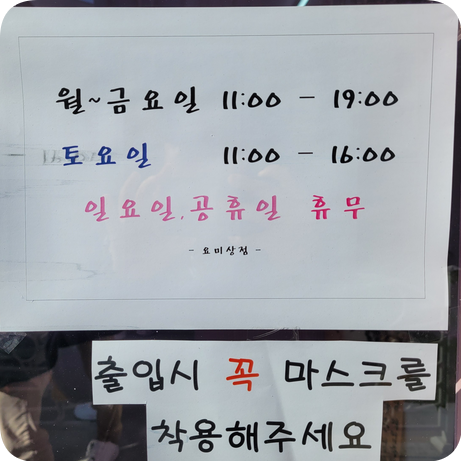 월~금요일 11:00 - 19:00
토요일 11:00 - 16:00
일요일,공휴일 휴무
- 요미상점 -
출입시 꼭 마스크를
착용해주세요